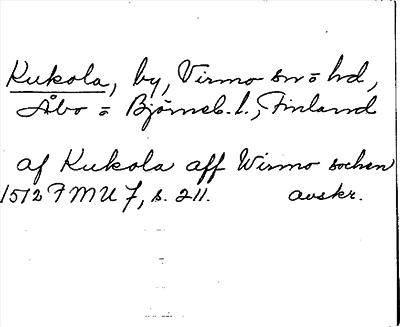 Kukola, by, Virmo sn = hd,
Åbo = Björneb. l., Finland
af Kukola aff Wirmo sochen
1512 FMU 7, s. 211. avskr.